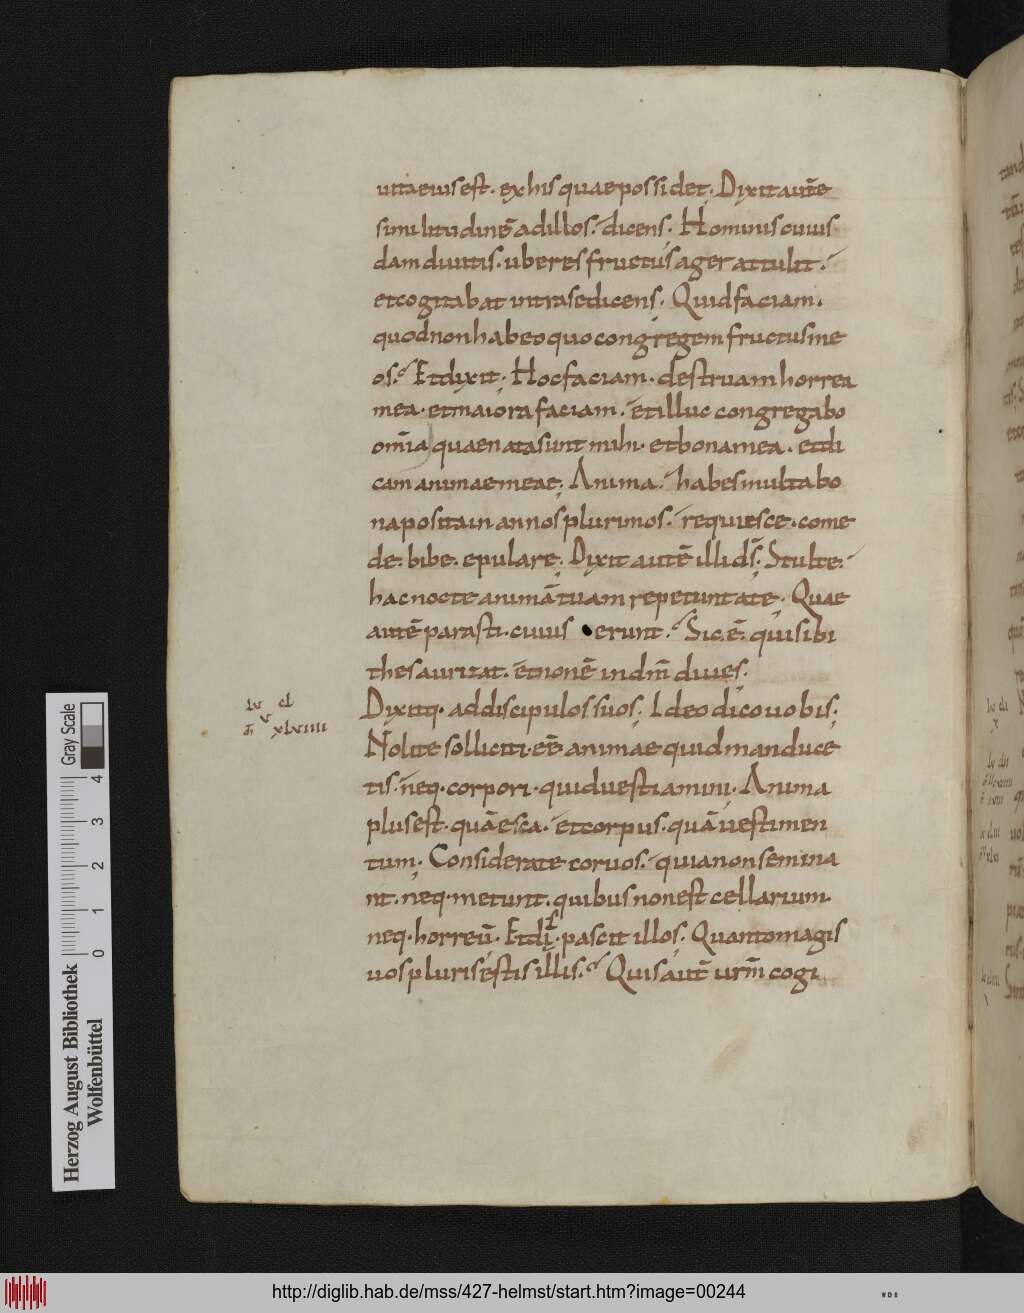 uitaeiusest. exhisquaepossidet; Dixitautē
similitudinē adillos. dicens. Hominiscuius
damdiuitis. uberesfructus ager attulit.
etcogitabat intrasedicens. Quidfaciam.
quodnonhabeoquocongregemfructusme
os. Etdixit. Hocfaciam. destruamhorrea
mea. etmaiorafaciam. etilluc congregabo
om̄ia quaenatasunt mihi. etbonamea. etdi
cam animaemeae; Anima. habesmultabo
napositain annosplurimos. requiesce. come
de. bibe. epulare; Dixit autē illi ds̄; Stulte.
hacnocte animā tuam repetuntate. Quae
autē parasti. cuius erunt. Sic ē. quisibi
thesaurizat. etnonē indm̄ diues;
lu cl
Dixitq. addiscipulossuos; Ideo dicouobis;
v
m̄ xlviiii
Nolite solliciti eē animae quidmanduce
tis. neq. corpori. quiduestiamini. Anima
plusest. quāesca. etcorpus. quā uestimen
tum; Considerate coruos. quianonsemina
nt. neq. metunt. quibusnonest cellarium.
neq. horreū. Etdī pascit illos. Quantomagis
uosplurisestisillis. Quisautē ur̄m cogi
Gray Scale
4 3 2 1 0
Herzog August Bibliothek
Wolfenbüttel
http://diglib.hab.de/mss/427-helmst/start.htm?image=00244